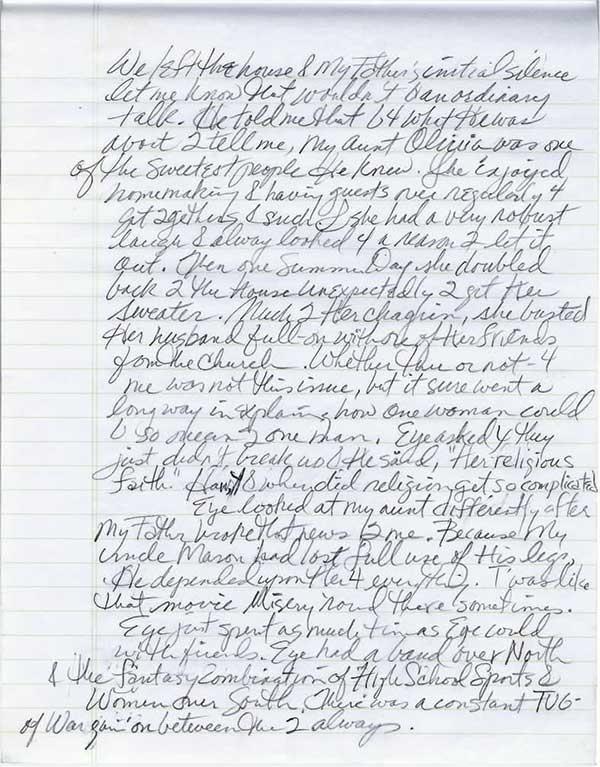 We left the house & My Father's initial silence
let me know that wouldn't b an ordinary
talk. He told me that b4 what He was
about 2 tell me, my aunt Olivia was one
of the sweetest people He knew. She enjoyed
homemaking & having guests over regularly 4
get 2gethers & such. She had a very robust
laugh & alway looked 4 a reason 2 let it
out. Then one Summer Day she doubled
back 2 the House unexpectedly 2 get Her
sweater. Much 2 Her chagrin, she busted
Her husband full-on with one of Her friends
from the church. Whether true or not - 4
me was not this issue, but it sure went a
long way in explaing how one woman could
b so mean 2 one man. Eye asked y they
just didn't break up & He said, "Her religious
faith". when did religion get so complicated
Eye looked at my aunt differently after
My Father broke that news 2 me. Because My
Uncle Mason had lost full use of His legs,
He depended upon Her 4 everything. T'was like
that movie Misery round there sometimes.
Eye just spent as much time as Eye could
with friends. Eye had a band over North
& the fantasy combination of High School Sports &
Women over South. There was a constant TUG-
of War goin' on between the 2 always.